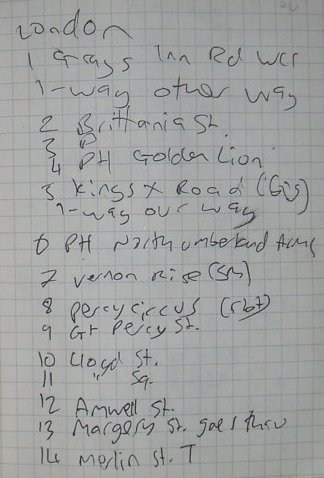 London
1 Grays Inn Rd WC1
1-way other way
2 Brittania St.
3 "
4 PH Golden Lion
5 Kings X Road (Gis)
1-way our way
6 PH Northumberland Arms
7 Vernon Rise (Sm)
8 Percy Circus (rbt)
9 Gt Percy St.
10 Lloyd St.
11 " Sq.
12 Amwell St.
13 Margery St. goes thru
14 Merlin St. T